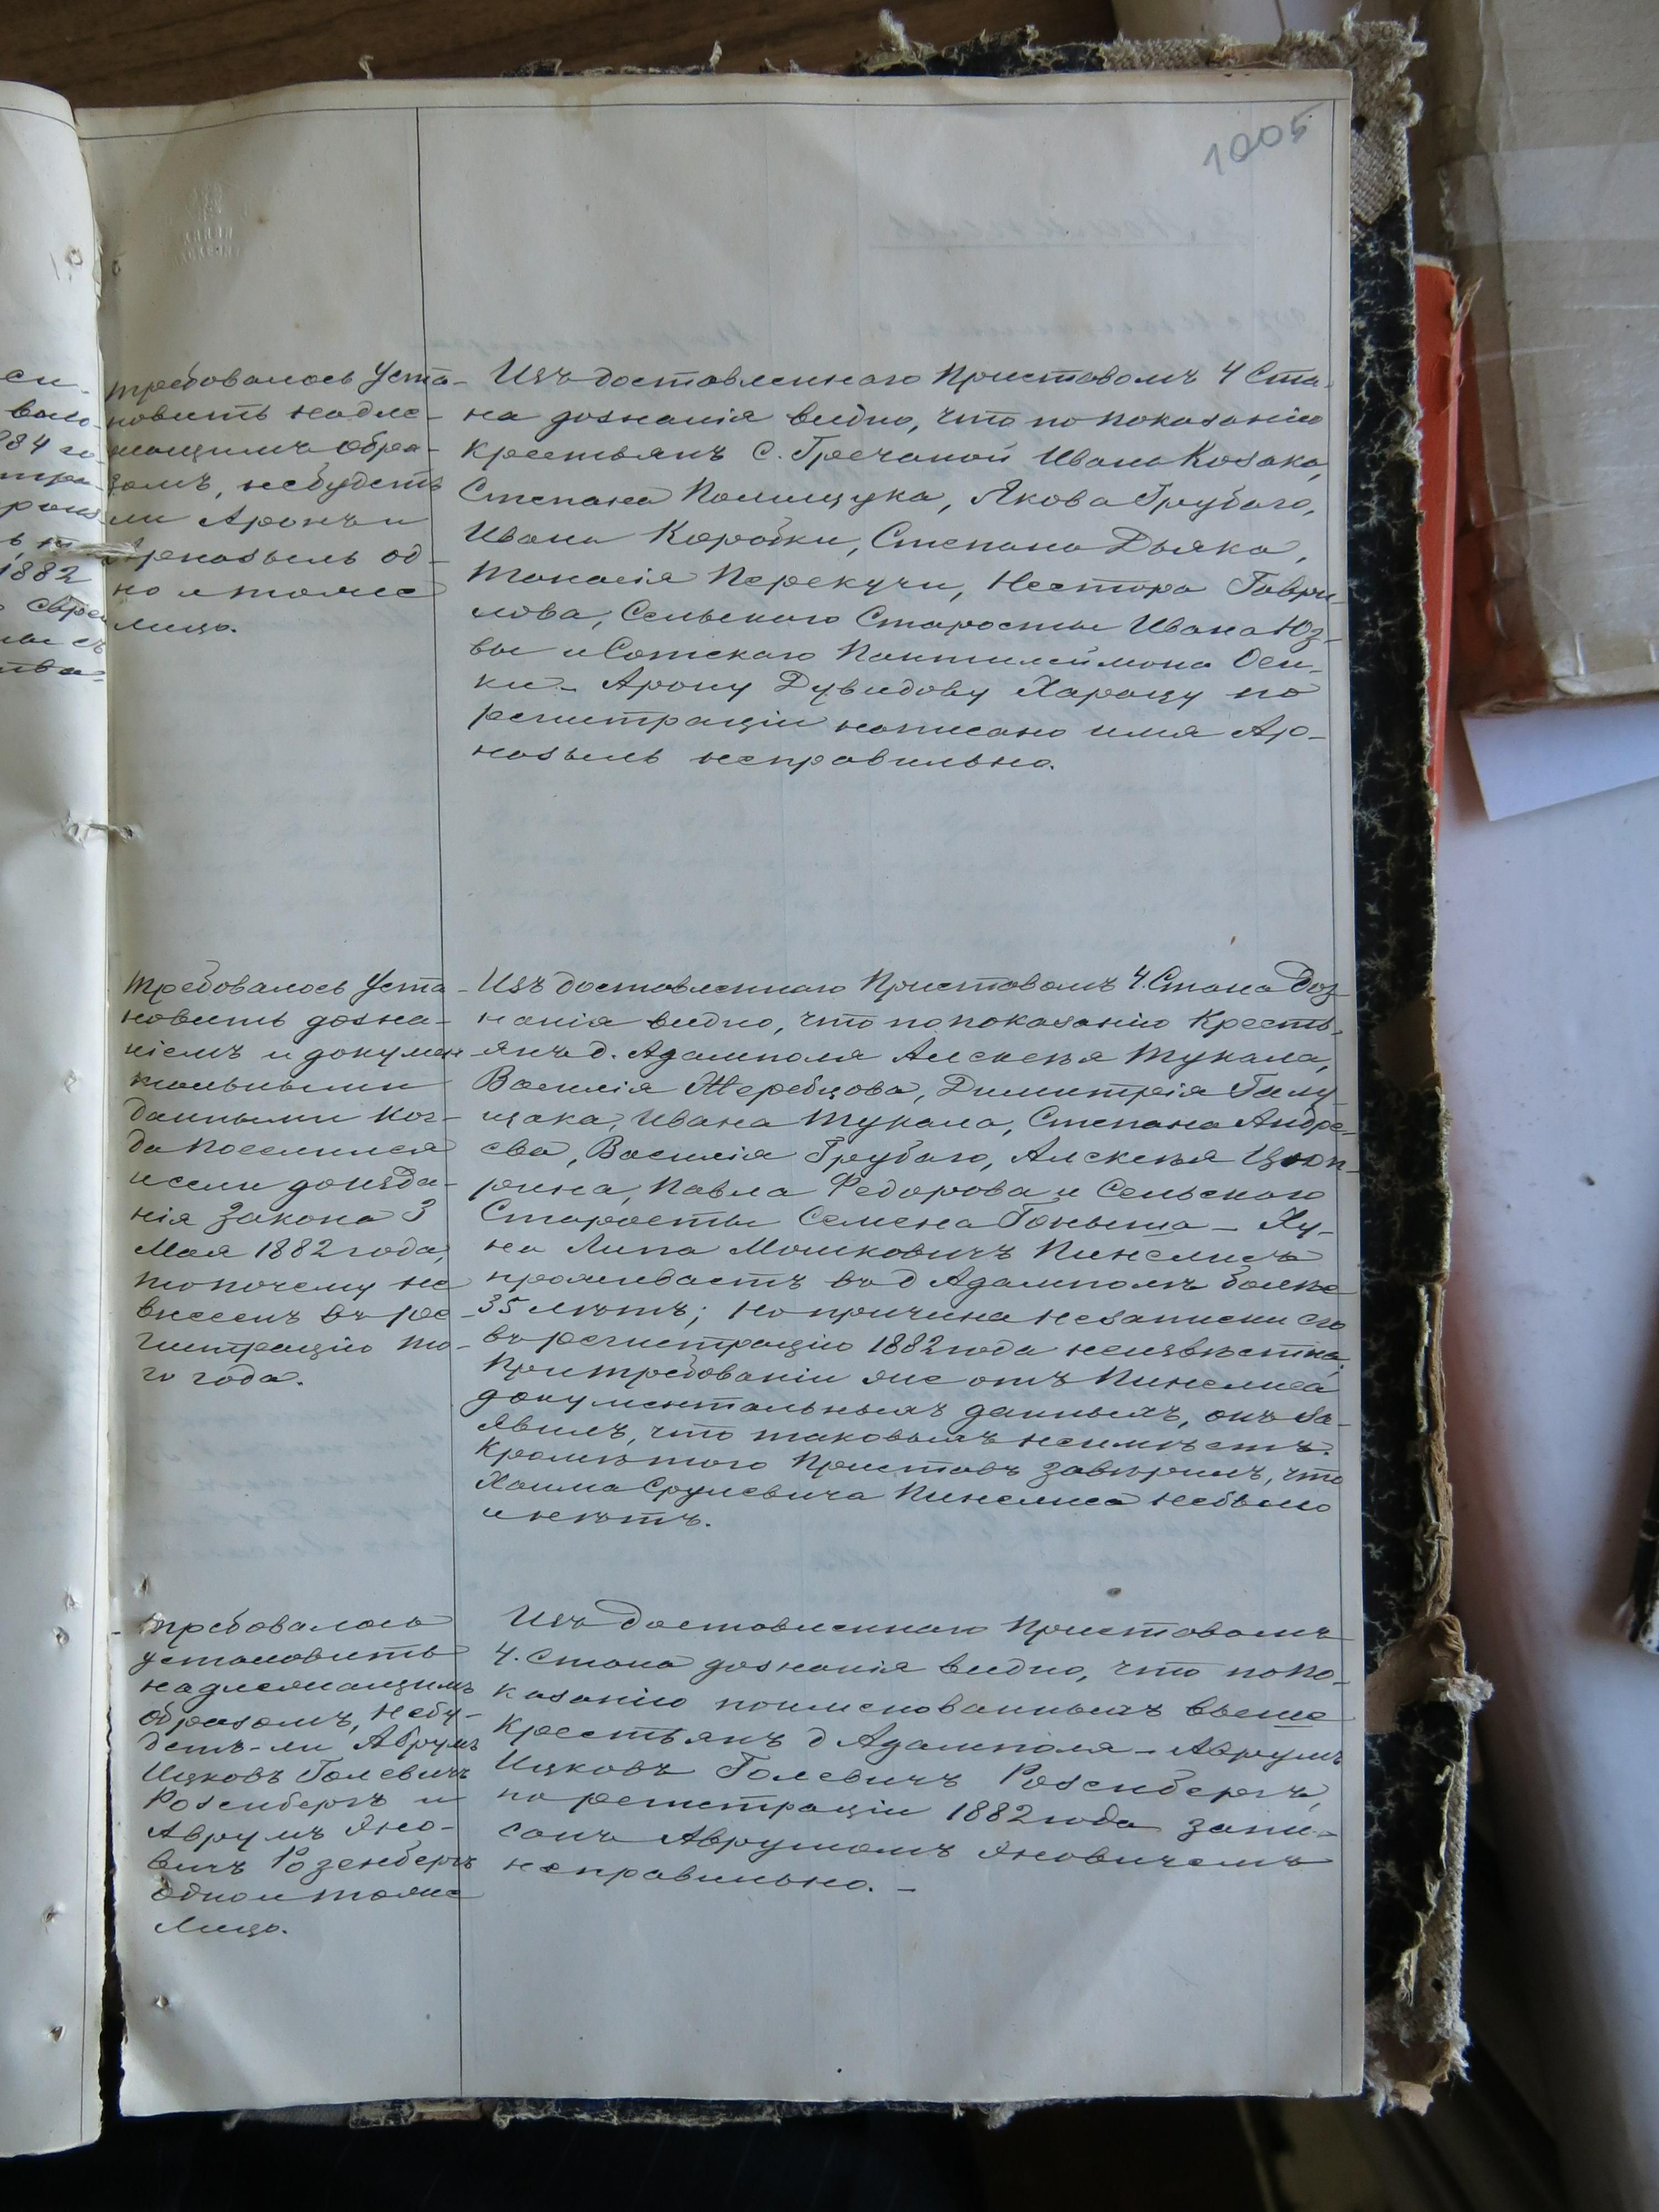 1005
требовалось уста-
новить надле-
жащимъ обра-
зомъ, небудетъ
ли Аронъ и
Арназыль од-
но и тоже
лицо.
Изъ доставленнаго Приставомъ 4 Ста-
на дознанія видно, что по показанію
крестьянъ с. Гречаной Ивана Козака,
Степана Полищука, Якова Грубаго,
Ивана Коробки, Степана Дьяка,
Танасія Перекучи, Нестора Гаври-
лова, Сельскаго Старосты Ивана Юз-
вы и Сотскаго Пантилеймона Оси-
ки – Арону Дувидову Харацу по
регистраціи написано имя Ар-
назыль несправильно.
требовалось уста-
новить дозна-
ніемъ и докумен-
тальными
данными ког-
да поселился
и если до изда-
нія закона 3
Мая 1882 года,
то почему не
внесенъ въ ре-
гистрацію то-
го года.
Изъ доставленнаго Приставомъ 4. Стана Доз-
нанія видно, что по показанію Кресть-
янъ д. Адамполя Алексея Тукала,
Василія Жеребцова, Димитрія
Ивана Тукала, Степана Андре-
ева, Василія Грубаго, Алексея
Павла Федорова и Сельскаго
Старосты Семена – Ху-
на Липа Мошковичъ Пинелисъ
проживаетъ въ д Адамполѣ болѣе
35 лѣтъ; но причина незаписки его
въ регистрацію 1882 года неизвѣстна.
При требованіи же отъ Пинелиса
документальныхъ данныхъ, онъ за-
явилъ, что таковыхъ неимѣетъ.
Кромѣ того Приставъ завѣрилъ, что
Хаима Срулевича Пинелиса небыло
и нѣтъ.
требовалось
установить
надлежащимъ
образомъ, небу-
детъ-ли Аврумъ
Ицковъ Голевичъ
Розенбергъ и
Аврумъ Яно-
вичъ Розенбергъ
одно и тоже
лицо.
Изъ доставленнаго Приставомъ
4. Стана дознанія видно, что по по-
казанію поименованныхъ выше
крестьянъ д Адамполя – Аврумъ
Ицковъ Голевичъ Розенбергъ,
по регистраціи 1882 года запи-
санъ Аврумомъ Яновичемъ
несправильно. –